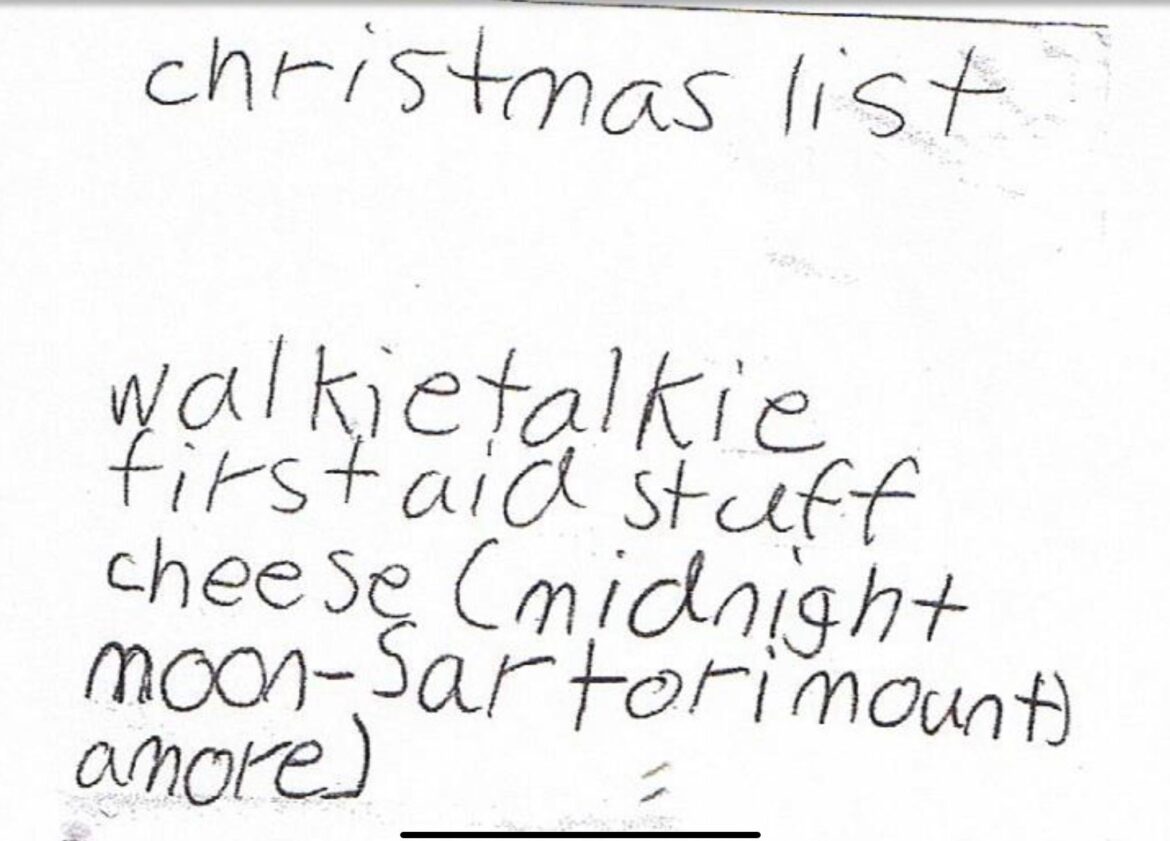 christmas list
walkietalkie
first aid stuff
cheese (midnight
moon-Sartori mount)
amore)